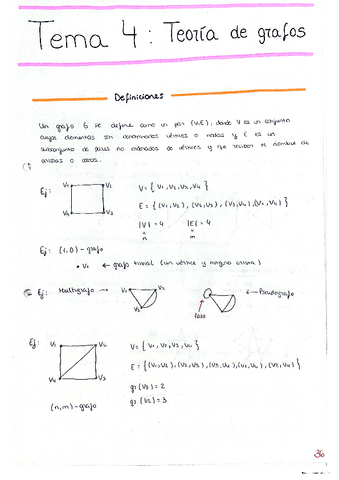 Tema 4: Teoría de grafos
Definiciones
Un grafo G se define como un par (V,E), donde V es un conjunto
cuyos elementos son denominados vértices o nodos y E es un
subconjunto de pares no ordenados de vértices y que reciben el nombre de
aristas o arcos.
Ej:
V₁ V₂
V₄ V₃
V = { V₁, V₂, V₃, V₄ }
E = { (V₁,V₂), (V₂,V₃), (V₃,V₄), (V₁,V₄) }
|V| = 4 |E| = 4
n m
Ej: (1,0) - grafo
• V₁ ← grafo trivial (un vértice y ninguna arista)
Ej: Multigrafo →
V₁ V₂
V₃
← Pseudografo
lazo
Ej:
V₁ V₂
V₄ V₃
(n,m) - grafo
V = { V₁, V₂, V₃, V₄ }
E = { (V₁,V₂), (V₂,V₃), (V₃,V₄), (V₁,V₄), (V₂,V₄) }
gr (V₃) = 2
gr (V₂) = 3
36